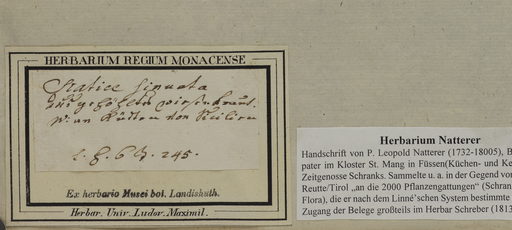 HERBARIUM REGIUM MONACENSE
Statice sinuata
w. an Küsten von Sicilien
245.
Ex herbario Musei bot. Landishuth.
Herbar. Univ. Ludov. Maximil.
Herbarium Natterer
Handschrift von P. Leopold Natterer (1732-18005), B
pater im Kloster St. Mang in Füssen(Küchen- und Ke
Zeitgenosse Schranks. Sammelte u. a. in der Gegend vor
Reutte/Tirol „an die 2000 Pflanzengattungen“ (Schran
Flora), die er nach dem Linné’schen System bestimmte
Zugang der Belege großteils im Herbar Schreber (1813